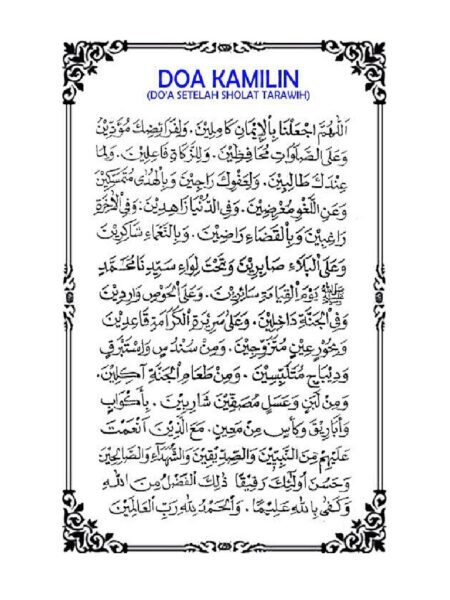 DOA KAMILIN
(DO'A SETELAH SHOLAT TARAWIH)
اَللّٰهُمَّ اجْعَلْنَا بِالْإِيْمَانِ كَامِلِيْنَ. وَلِفَرَائِضِكَ مُؤَدِّيْنَ
وَعَلَى الصَّلَوَاتِ مُحَافِظِيْنَ. وَلِلزَّكَاةِ فَاعِلِيْنَ. وَلِمَا
عِنْدَكَ طَالِبِيْنَ. وَلِعَفْوِكَ رَاجِيْنَ وَبِالْهُدٰى مُتَمَسِّكِيْنَ
وَعَنِ اللَّغْوِ مُعْرِضِيْنَ. وَفِى الدُّنْيَا زَاهِدِيْنَ. وَفِى الْآخِرَةِ
رَاغِبِيْنَ وَبِالْقَضَاءِ رَاضِيْنَ. وَبِالنَّعْمَاءِ شَاكِرِيْنَ
وَعَلَى الْبَلَاءِ صَابِرِيْنَ وَتَحْتَ لِوَاءِ سَيِّدِنَا مُحَمَّدٍ
ﷺ يَوْمَ الْقِيَامَةِ سَائِرِيْنَ. وَعَلَى الْحَوْضِ وَارِدِيْنَ
وَفِى الْجَنَّةِ دَاخِلِيْنَ. وَعَلٰى سَرِيْرَةِ الْكَرَامَةِ قَاعِدِيْنَ
وَبِحُوْرٍ عِيْنٍ مُتَزَوِّجِيْنَ. وَمِنْ سُنْدُسٍ وَاِسْتَبْرَقٍ
وَدِيْبَاجٍ مُتَلَبِّسِيْنَ. وَمِنْ طَعَامِ الْجَنَّةِ آكِلِيْنَ.
وَمِنْ لَبَنٍ وَعَسَلٍ مُصَفَّيْنَ شَارِبِيْنَ. بِأَكْوَابٍ
وَأَبَارِيْقَ وَكَأْسٍ مِنْ مَعِيْنٍ. مَعَ الَّذِيْنَ اَنْعَمْتَ
عَلَيْهِمْ مِنَ النَّبِيِّيْنَ وَالصِّدِّيْقِيْنَ وَالشُّهَدَاءِ وَالصَّالِحِيْنَ
وَحَسُنَ اُولٰئِكَ رَفِيْقًا ذٰلِكَ الْفَضْلُ مِنَ اللّٰهِ
وَكَفٰى بِاللّٰهِ عَلِيْمًا. وَالْحَمْدُ لِلّٰهِ رَبِّ الْعَالَمِيْنَ